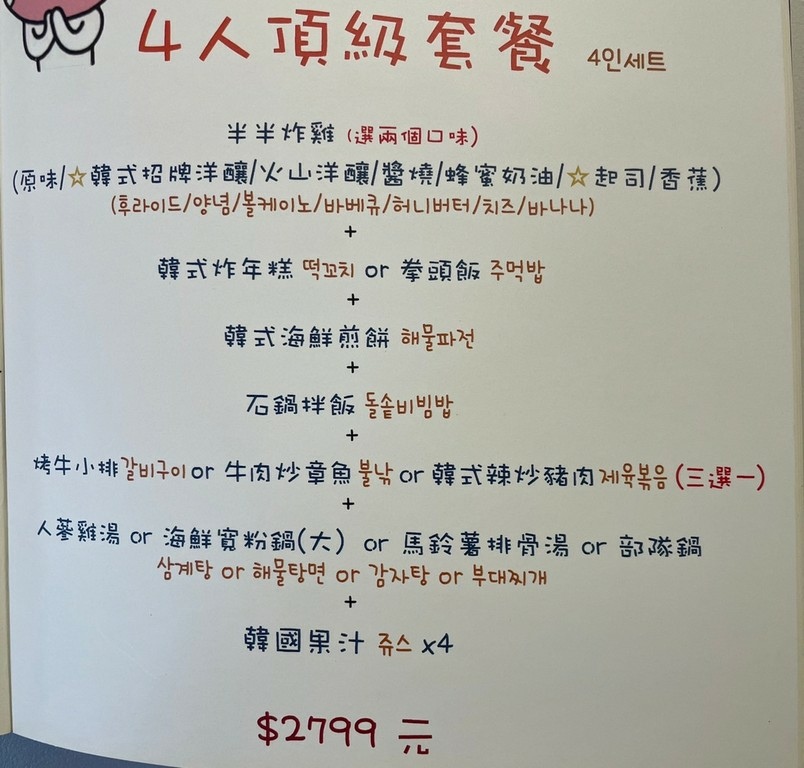 4人頂級套餐 4인세트
半半炸雞 (選兩個口味)
(原味/☆韓式招牌洋釀/火山洋釀/醬燒/蜂蜜奶油/☆起司/香蕉)
(후라이드/양념/볼케이노/바베큐/허니버터/치즈/바나나)
+
韓式炸年糕 떡꼬치 or 拳頭飯 주먹밥
+
韓式海鮮煎餅 해물파전
+
石鍋拌飯 돌솥비빔밥
+
烤牛小排갈비구이 or 牛肉炒章魚불낚 or 韓式辣炒豬肉제육볶음 (三選一)
+
人蔘雞湯 or 海鮮寬粉鍋(大) or 馬鈴薯排骨湯 or 部隊鍋
삼계탕 or 해물탕면 or 감자탕 or 부대찌개
+
韓國果汁 쥬스 x4
$2799 元